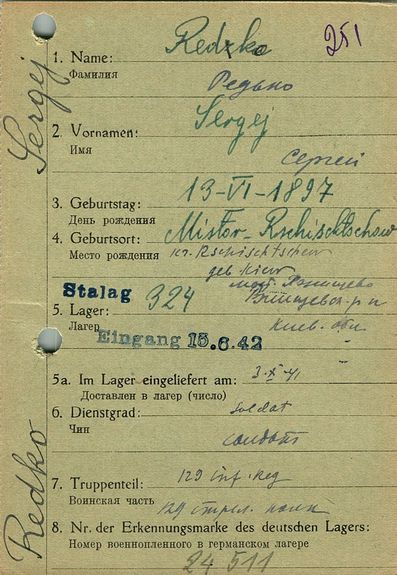 251
Redzko
1. Name:
Фамилия
Редько
Sergej
2. Vornamen:
Имя
Сергей
13-VI-1897
3. Geburtstag:
День рождения
4. Geburtsort: Mistor-Rschischtschow
Место рождения kr. Rschischtschew
geb Kiew
Stalag 324
5. Lager:
Лагер
Киев. обл
Eingang 15.6.42
5a. Im Lager eingeliefert am: 3-X-41
Доставлен в лагер (число)
6. Dienstgrad: soldat
Чин солдат
7. Truppenteil: 129 inf. Reg
Воинская часть 129 стрел. полк
8. Nr. der Erkennungsmarke des deutschen Lagers:
Номер военнопленного в германском лагере
24511
Redko Sergej